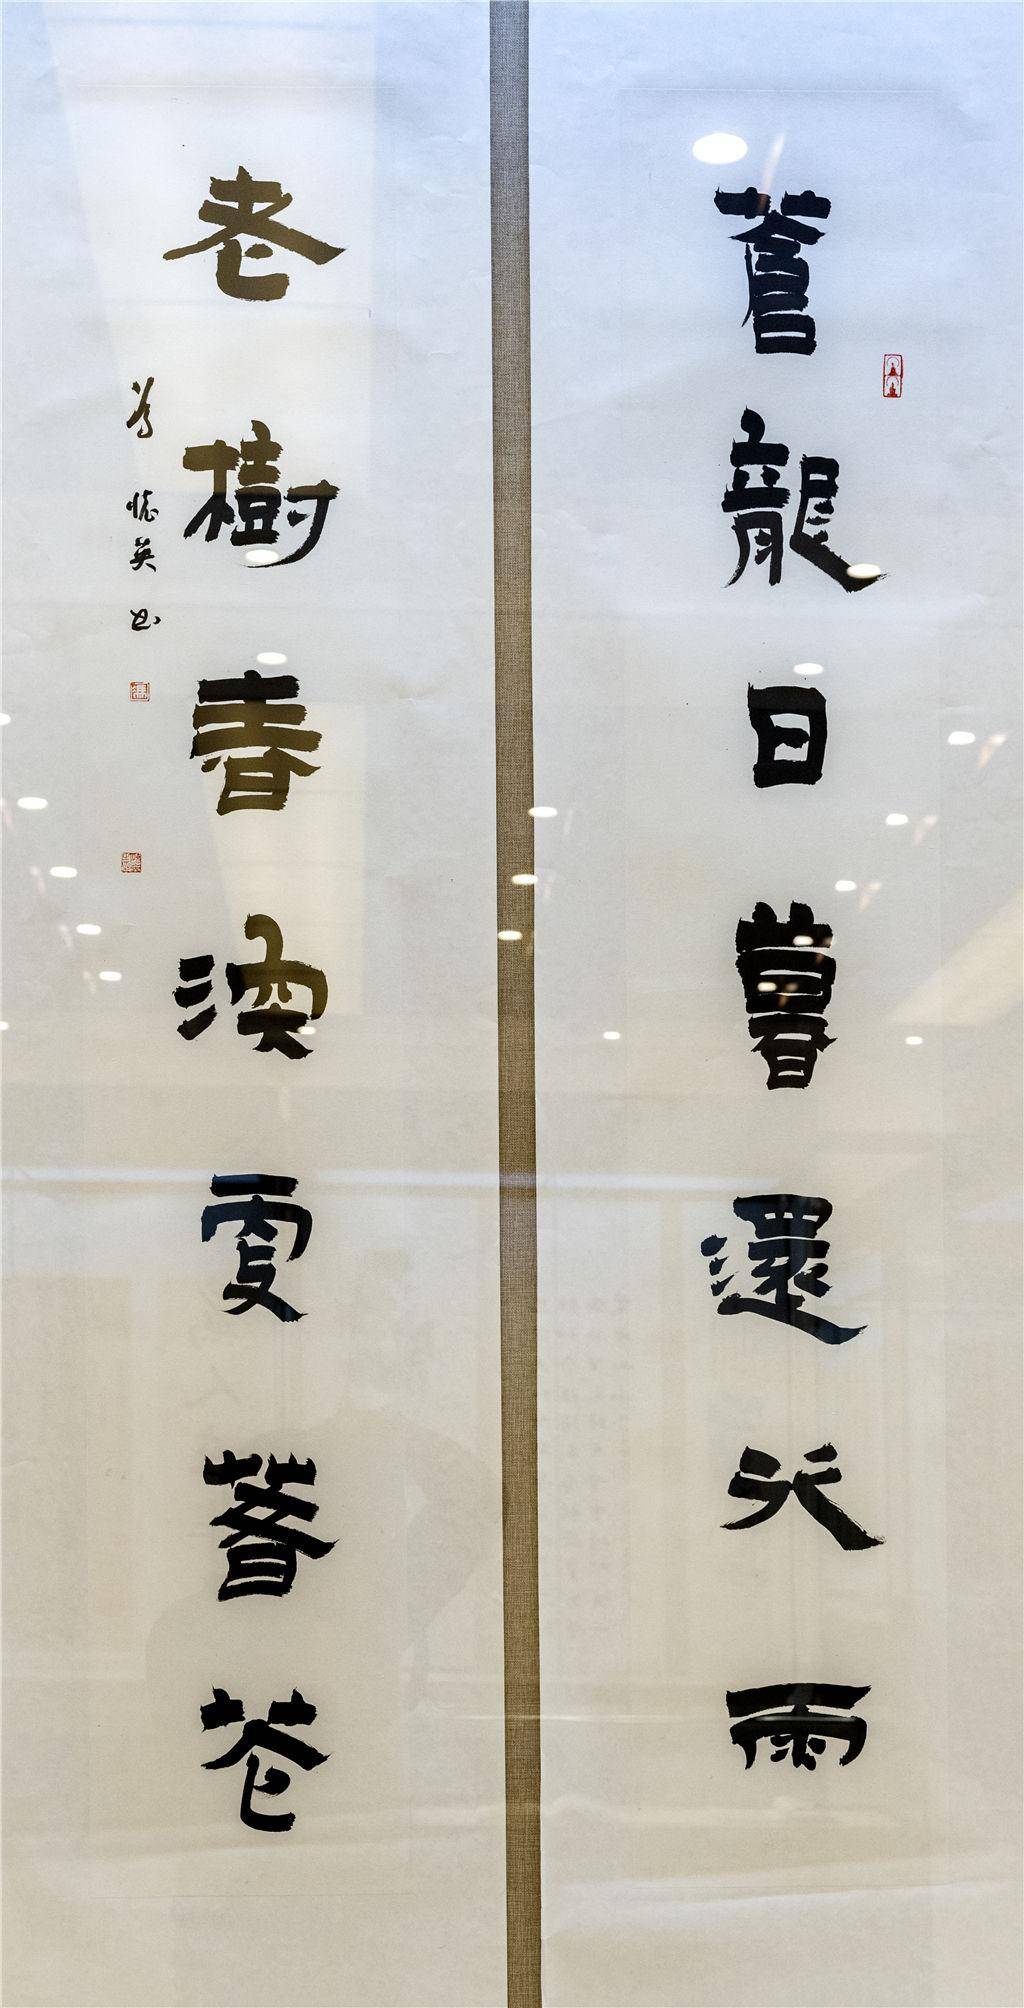 蒼龍日暮還行雨
老樹春深更著花
馮懷英书